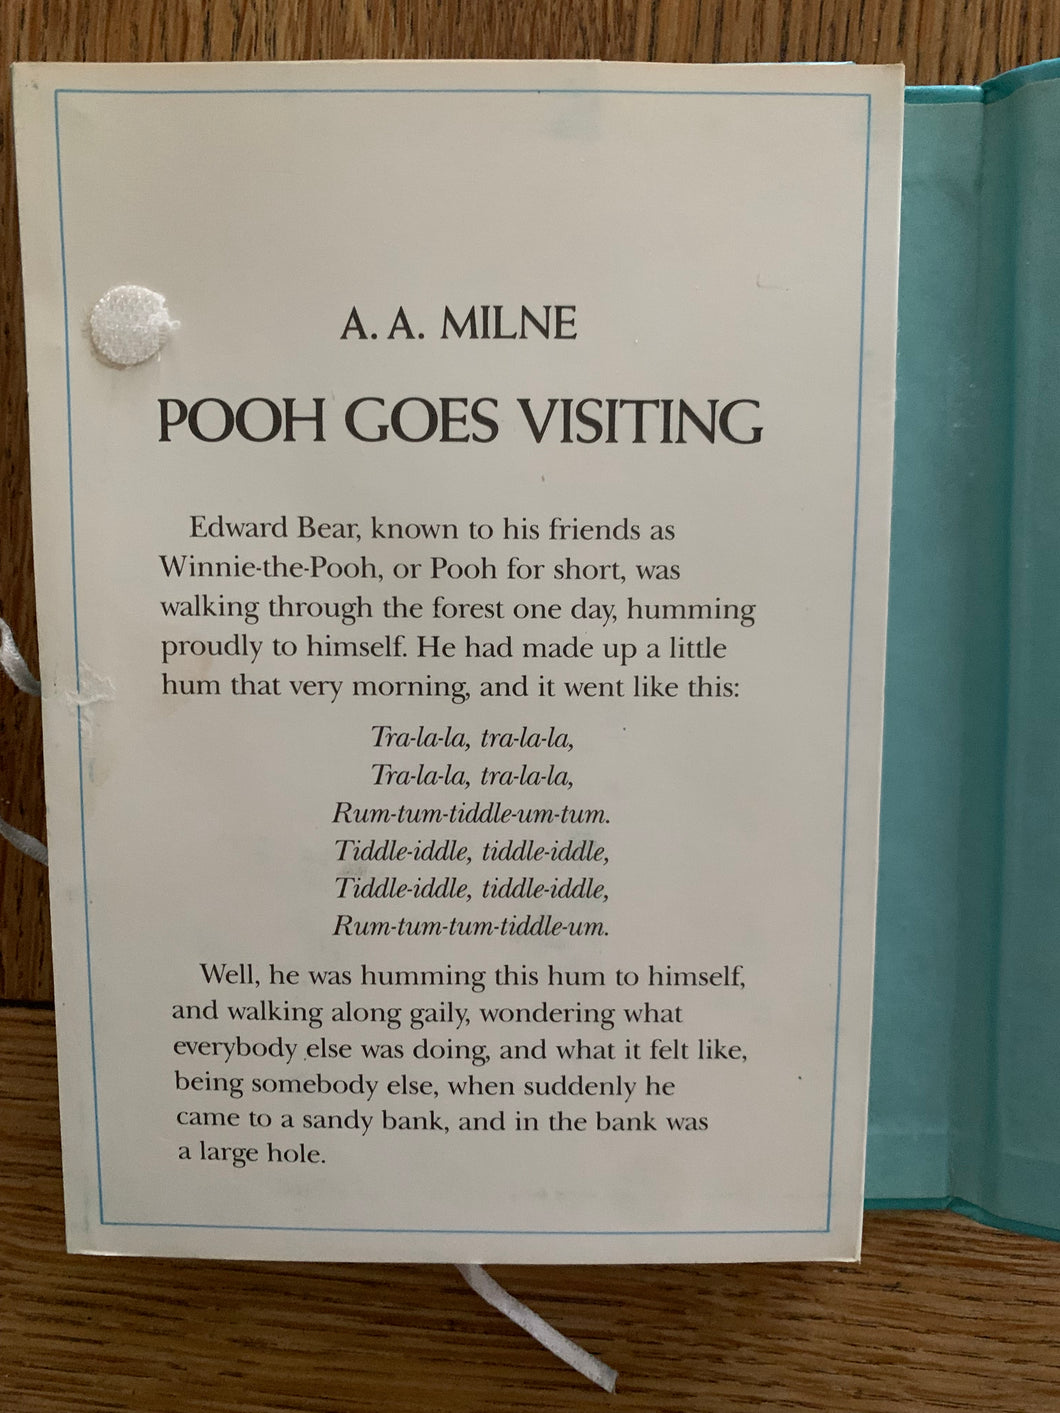 A. A. MILNE
POOH GOES VISITING
Edward Bear, known to his friends as
Winnie-the-Pooh, or Pooh for short, was
walking through the forest one day, humming
proudly to himself. He had made up a little
hum that very morning, and it went like this:
Tra-la-la, tra-la-la,
Tra-la-la, tra-la-la,
Rum-tum-tiddle-um-tum.
Tiddle-iddle, tiddle-iddle,
Tiddle-iddle, tiddle-iddle,
Rum-tum-tum-tiddle-um.
Well, he was humming this hum to himself,
and walking along gaily, wondering what
everybody else was doing, and what it felt like,
being somebody else, when suddenly he
came to a sandy bank, and in the bank was
a large hole.